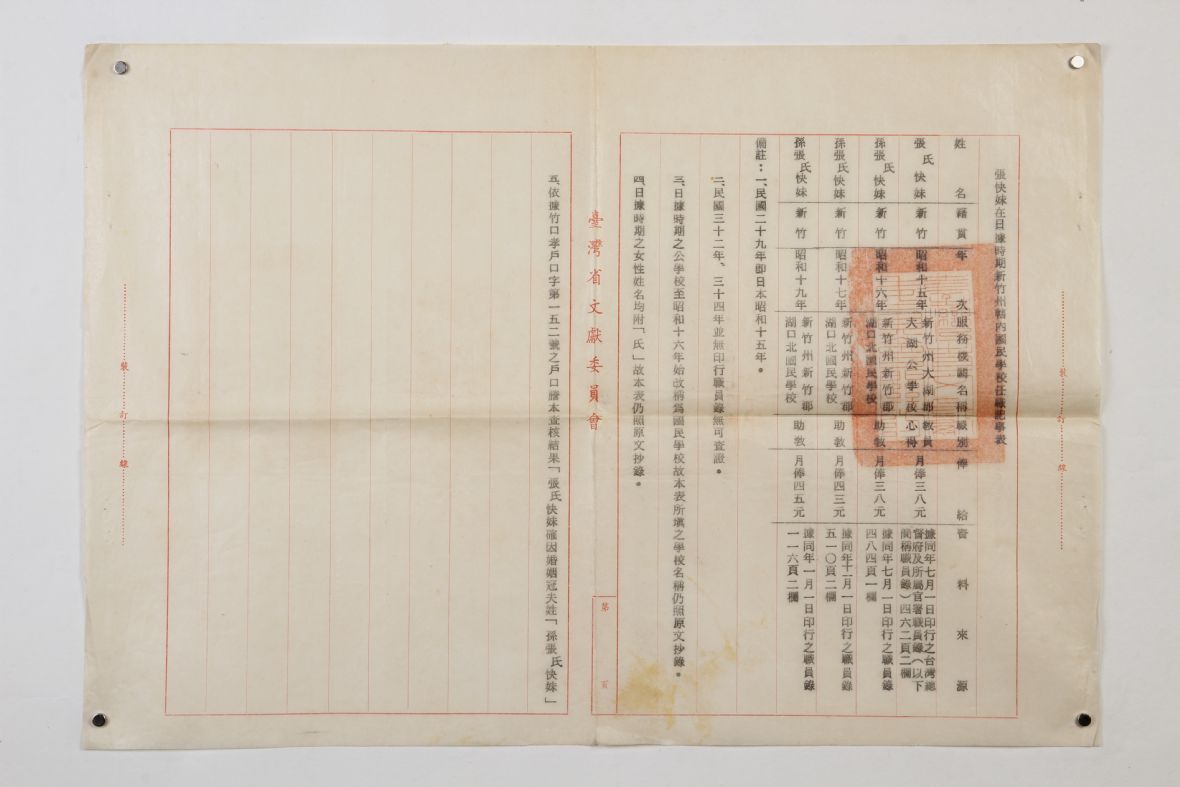 張快妹在日據時期新竹州轄內國民學校任職記事表
姓名 籍貫 年次 服務機關名稱 職別 俸給 資料來源
張氏快妹 新竹 昭和十五年 新竹州大湖郡大湖公學校 教員心得 月俸三八元 據同年七月一日印行之台灣總督府及所屬官署職員錄（以下簡稱職員錄）四六二頁二欄
孫張氏快妹 新竹 昭和十六年 新竹州新竹郡湖口北國民學校 助教 月俸三八元 據同年七月一日印行之職員錄四八四頁一欄
孫張氏快妹 新竹 昭和十七年 新竹州新竹郡湖口北國民學校 助教 月俸四三元 據同年十一月一日印行之職員錄五一〇頁二欄
孫張氏快妹 新竹 昭和十九年 新竹州新竹郡湖口北國民學校 助教 月俸四五元 據同年一月一日印行之職員錄一一六頁二欄
備註：一、民國二十九年即日本昭和十五年。
二、民國三十二年、三十四年並無印行職員錄無可查證。
三、日據時期之公學校至昭和十六年始改稱為國民學校故本表所填之學校名稱仍照原文抄錄。
四、日據時期之女性姓名均附「氏」故本表仍照原文抄錄。
臺灣省文獻委員會
第 頁
五、依據竹口孝戶口字第一五二號之戶口謄本查核結果「張氏快妹確因婚姻冠夫姓「孫張氏快妹」
裝訂線
裝訂線